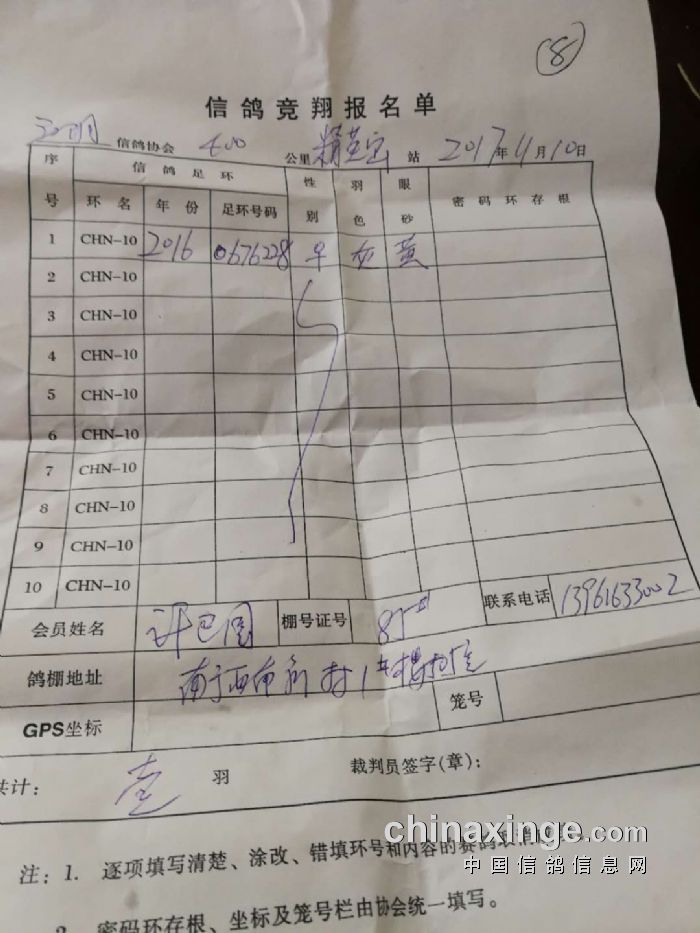 (8)
信鸽竞翔报名单
信鸽协会 400 公里 站 2017年4月10日
序号 信鸽足环 性别 羽色 眼砂 密码环存根
环名 年份 足环号码
1 CHN-10 2016 0676228 早 灰 黄
2 CHN-10
3 CHN-10
4 CHN-10
5 CHN-10
6 CHN-10
7 CHN-10
8 CHN-10
9 CHN-10
10 CHN-10
会员姓名 棚号证号 联系电话 13961633002
鸽棚地址
GPS坐标 笼号
共计: 壹 羽 裁判员签字(章):
注: 1. 逐项填写清楚、涂改、错填环号和内容的赛鸽
2. 密码环存根、坐标及笼号栏由协会统一填写。
chinaxinge.com
中国信鸽信息网